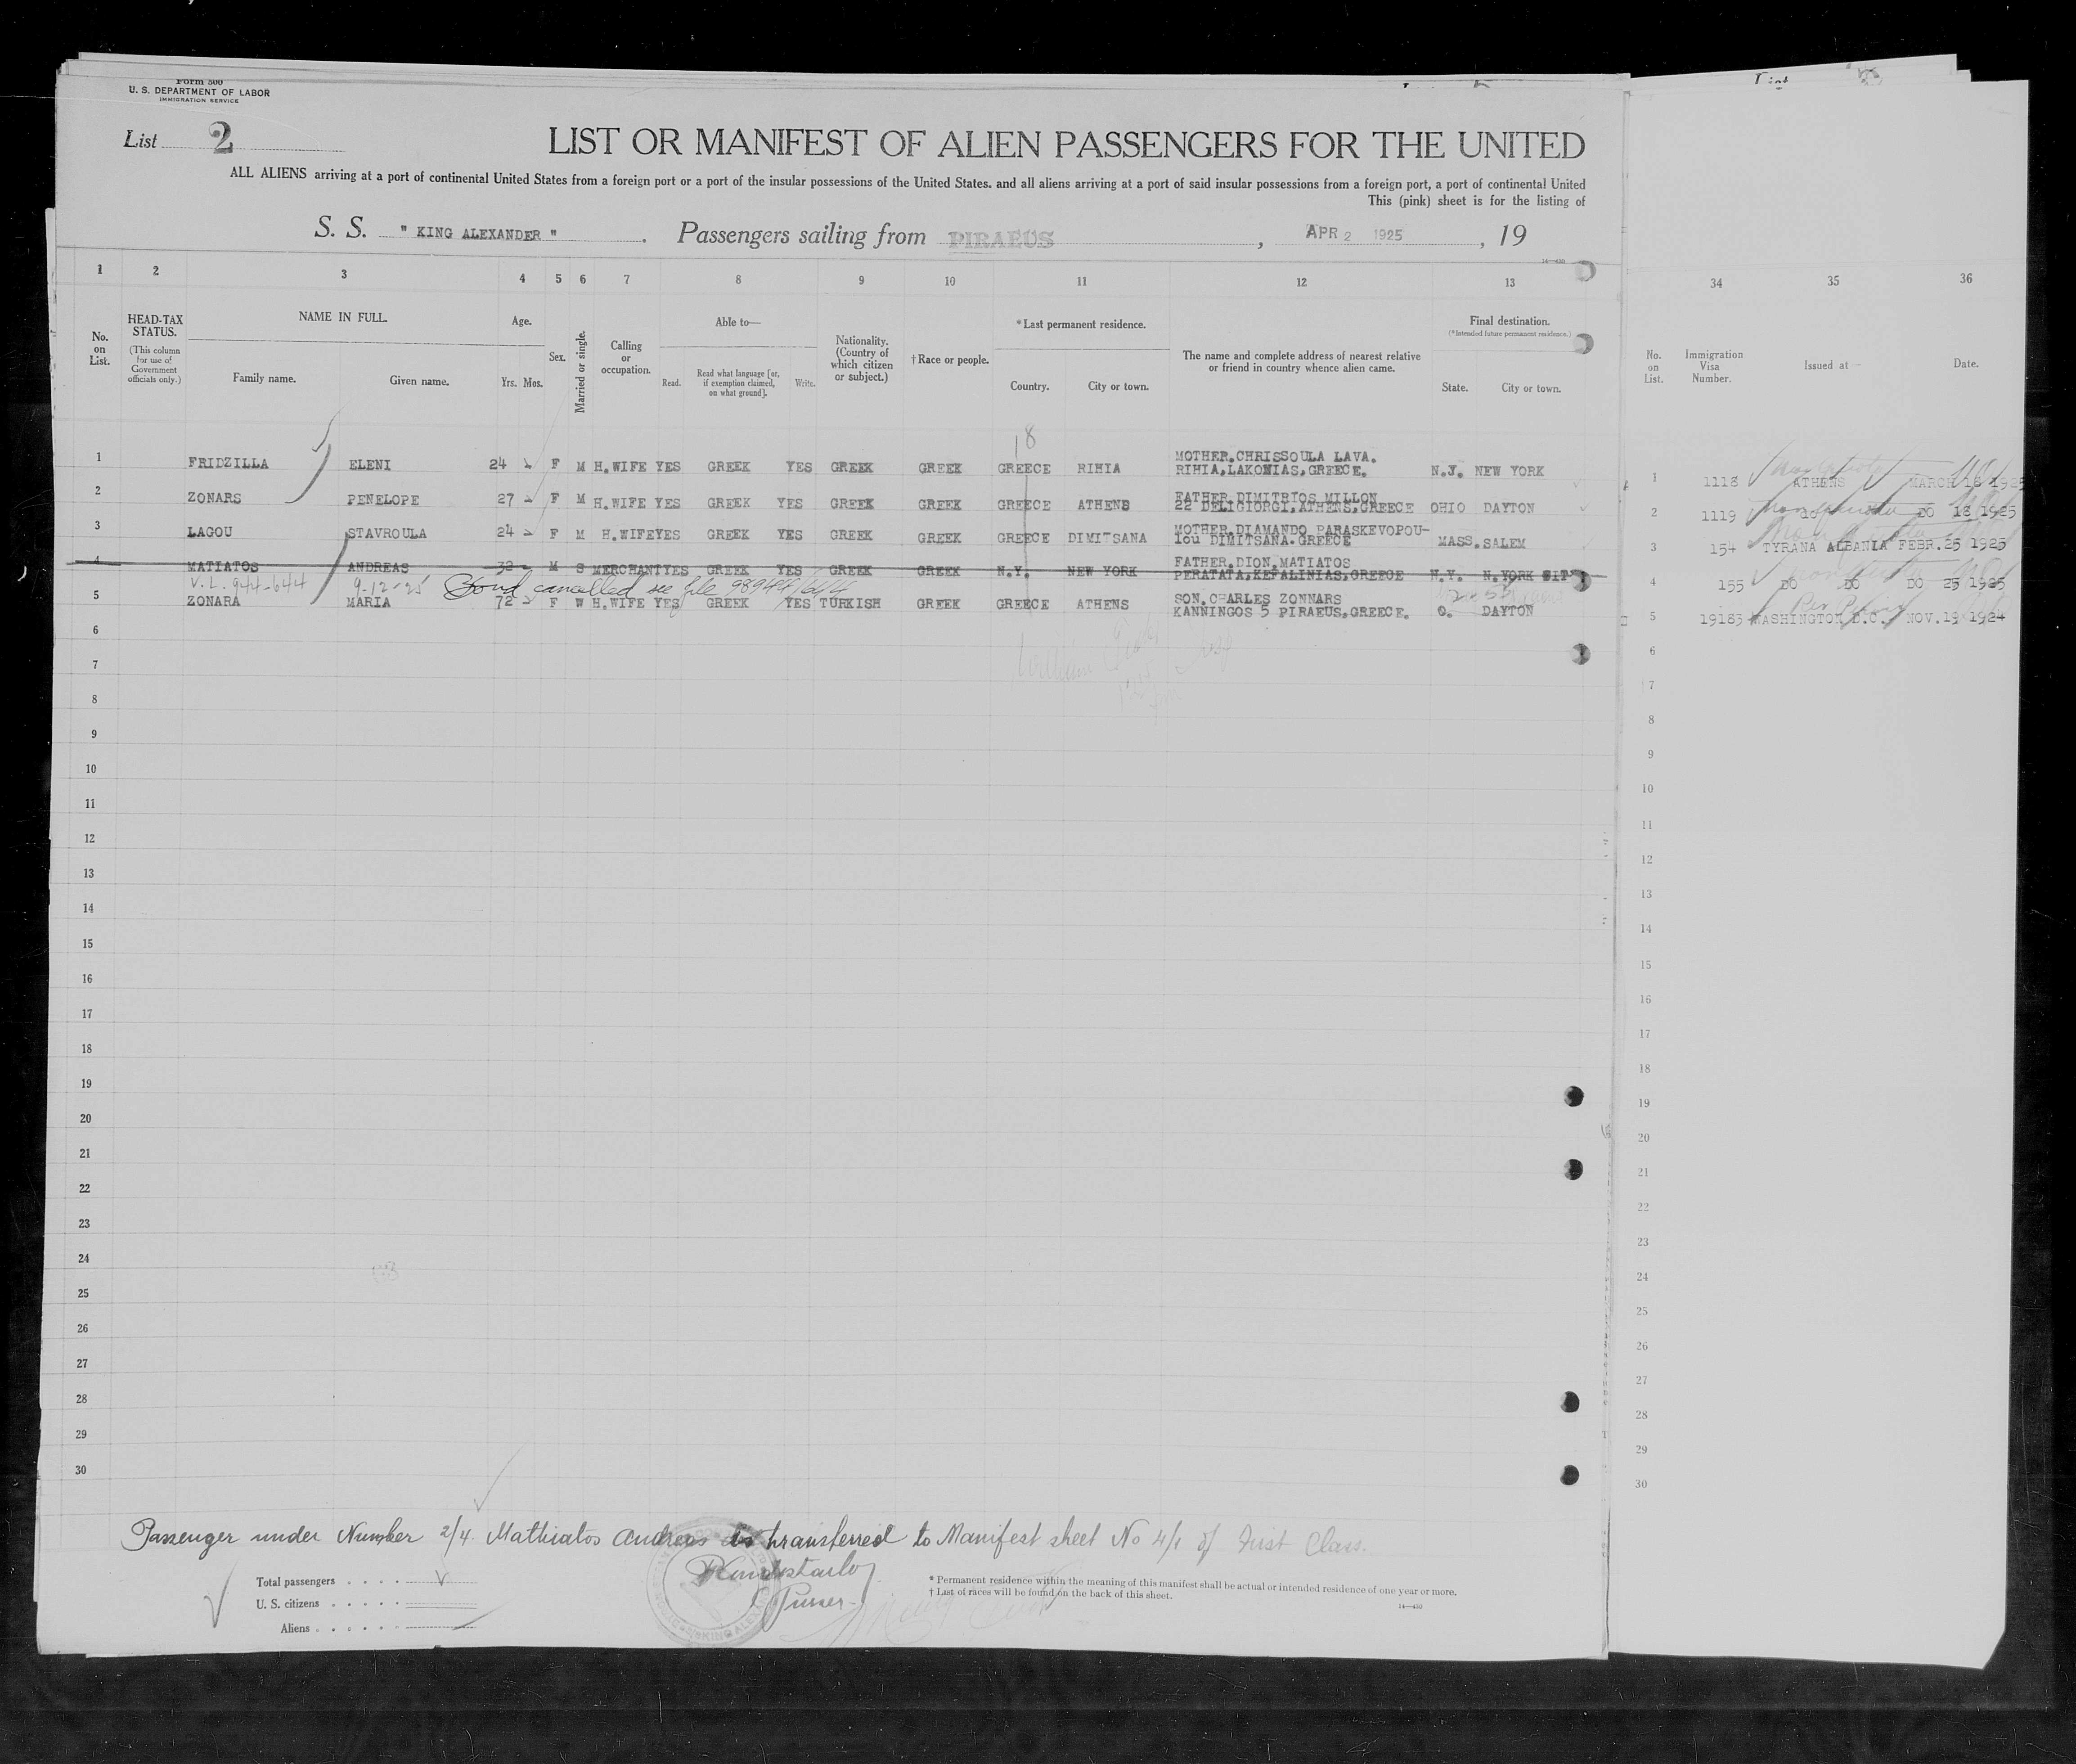 Form 500
U. S. DEPARTMENT OF LABOR
IMMIGRATION SERVICE
List 2
LIST OR MANIFEST OF ALIEN PASSENGERS FOR THE UNITED
ALL ALIENS arriving at a port of continental United States from a foreign port or a port of the insular possessions of the United States, and all aliens arriving at a port of said insular possessions from a foreign port, a port of continental United
This (pink) sheet is for the listing of
S. S. " KING ALEXANDER " . Passengers sailing from PIRAEUS , APR 2 1925 , 19
1 2 3 4 5 6 7 8 9 10 11 12 13 34 35 36
No. on List.
HEAD-TAX STATUS.
(This column for use of Government officials only.)
NAME IN FULL.
Family name. Given name.
Age.
Yrs. Mos.
Sex.
Married or single.
Calling or occupation.
Able to—
Read. Read what language [or, if exemption claimed, on what ground]. Write.
Nationality. (Country of which citizen or subject.)
† Race or people.
* Last permanent residence.
Country. City or town.
The name and complete address of nearest relative or friend in country whence alien came.
Final destination.
(* Intended future permanent residence.)
State. City or town.
No. on List.
Immigration Visa Number.
Issued at—
Date.
18
MOTHER.CHRISSOULA LAVA.
1 FRIDZILLA ELENI 24 F M H.WIFE YES GREEK YES GREEK GREEK GREECE RIHIA RIHIA,LAKONIAS,GREECE. N.J. NEW YORK 1 1118 ATHENS MARCH 18 1925
FATHER DIMITRIOS MILLON
2 ZONARS PENELOPE 27 F M H.WIFE YES GREEK YES GREEK GREEK GREECE ATHENS 22 DELIGIORGI,ATHENS,GREECE OHIO DAYTON 2 1119 DO DO 18 1925
MOTHER.DIAMANDO PARASKEVOPOU-
3 LAGOU STAVROULA 24 F M H.WIFE YES GREEK YES GREEK GREEK GREECE DIMITSANA lou DIMITSANA.GREECE MASS. SALEM 3 154 TYRANA ALBANIA FEBR.25 1925
FATHER.DION.MATIATOS
4 MATIATOS ANDREAS 32 M S MERCHANT YES GREEK YES GREEK GREEK N.Y. NEW YORK PERATATA,KEFALINIAS,GREECE N.Y. N.YORK CITY 4 155 DO DO DO 25 1925
V.L. 944-644 9-12-25 Bond cancelled see file 98944/644
SON.CHARLES ZONNARS
5 ZONARA MARIA 72 F W H.WIFE YES GREEK YES TURKISH GREEK GREECE ATHENS KANNINGOS 5 PIRAEUS,GREECE. O. DAYTON 5 19183 WASHINGTON D.C. NOV.19 1924
6 6
7 7
8 8
9 9
10 10
11 11
12 12
13 13
14 14
15 15
16 16
17 17
18 18
19 19
20 20
21 21
22 22
23 23
24 24
25 25
26 26
27 27
28 28
29 29
30 30
Passenger under Number 2/4 Mathiatos Andreas is transferred to Manifest sheet No 4/1 of First Class.
Purser
Total passengers
U. S. citizens
Aliens
* Permanent residence within the meaning of this manifest shall be actual or intended residence of one year or more.
† List of races will be found on the back of this sheet.
14—430